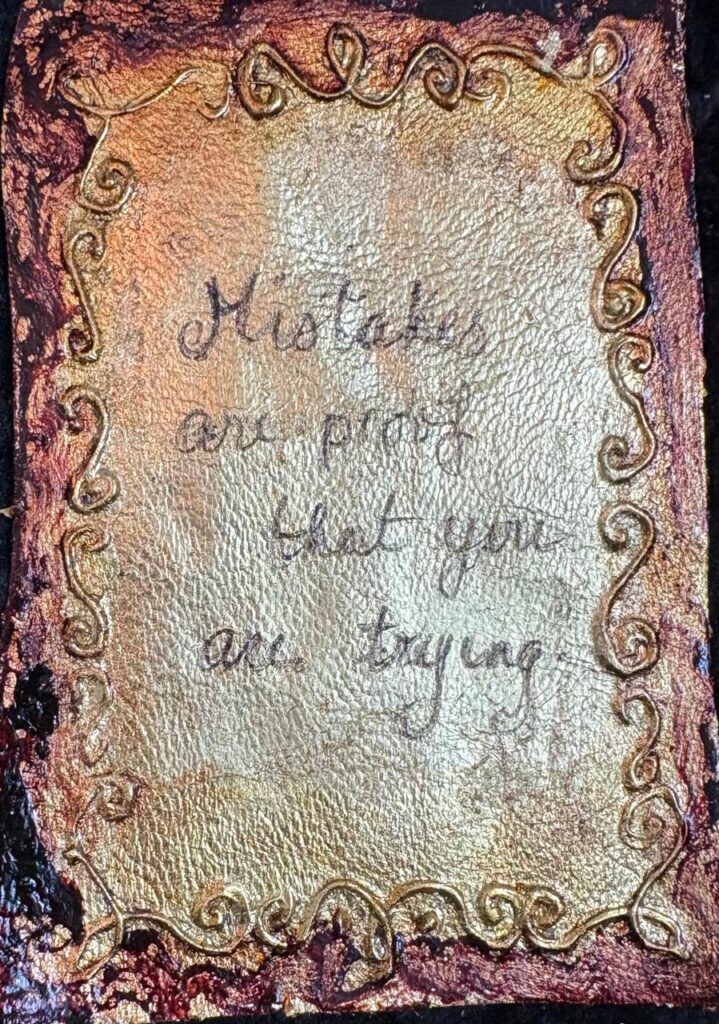 Mistakes
are proof
that you
are trying.